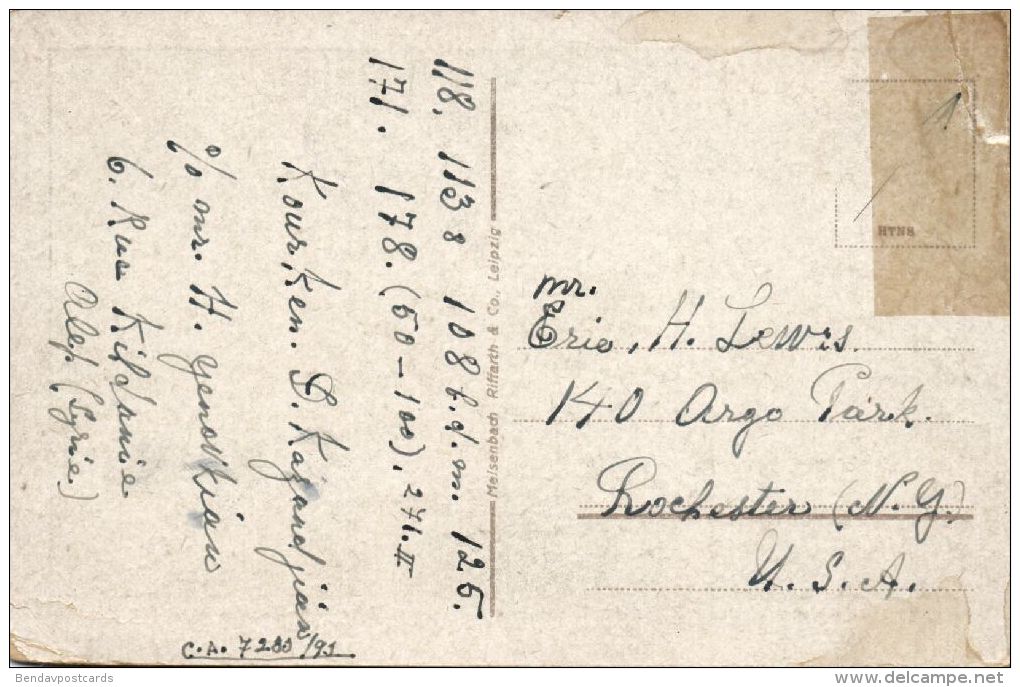 118. 113 8 108 f.g.m. 125.
171. 178. (50-100). 271. II
Kourken. D. Kazandjian
% mr. H. yenovkian
6. Rue Kildanie
Alep (Syrie.)
C.A. 7200/91
Meisenbach Riffarth & Co., Leipzig
1
HTNS
mr.
Eric, H. Lewis.
140 Argo Park.
Rochester (N.Y.)
U.S.A.
Bendavpostcards
www.delcampe.net